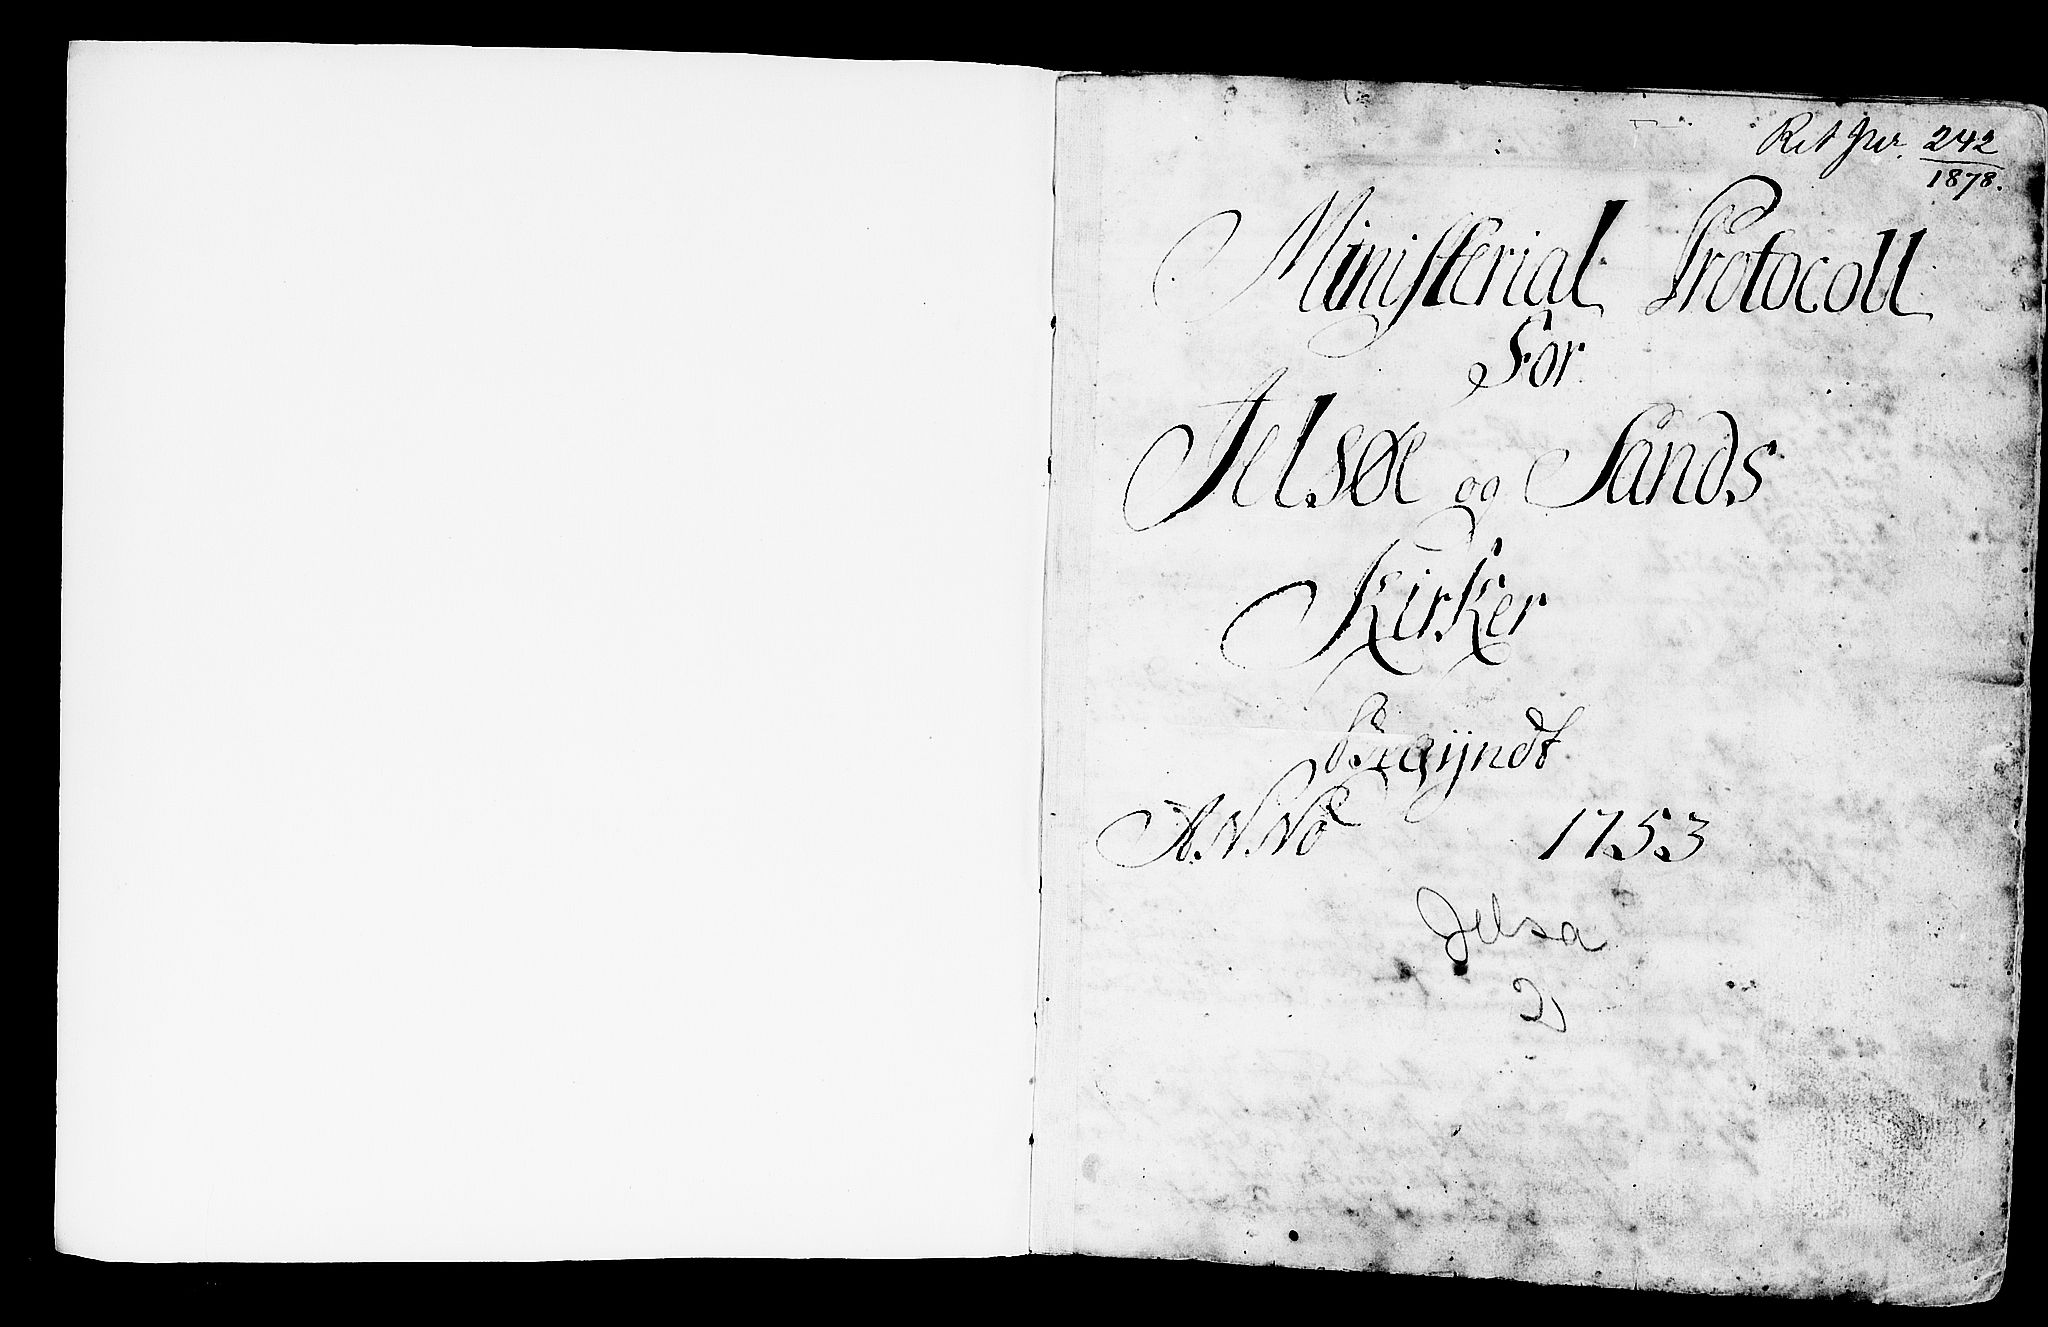 242
1878.
Ministerial Protocoll
For
Jelsøe og Sands
Kirker
Begyndt
ANNO 1753
Jelsa
2